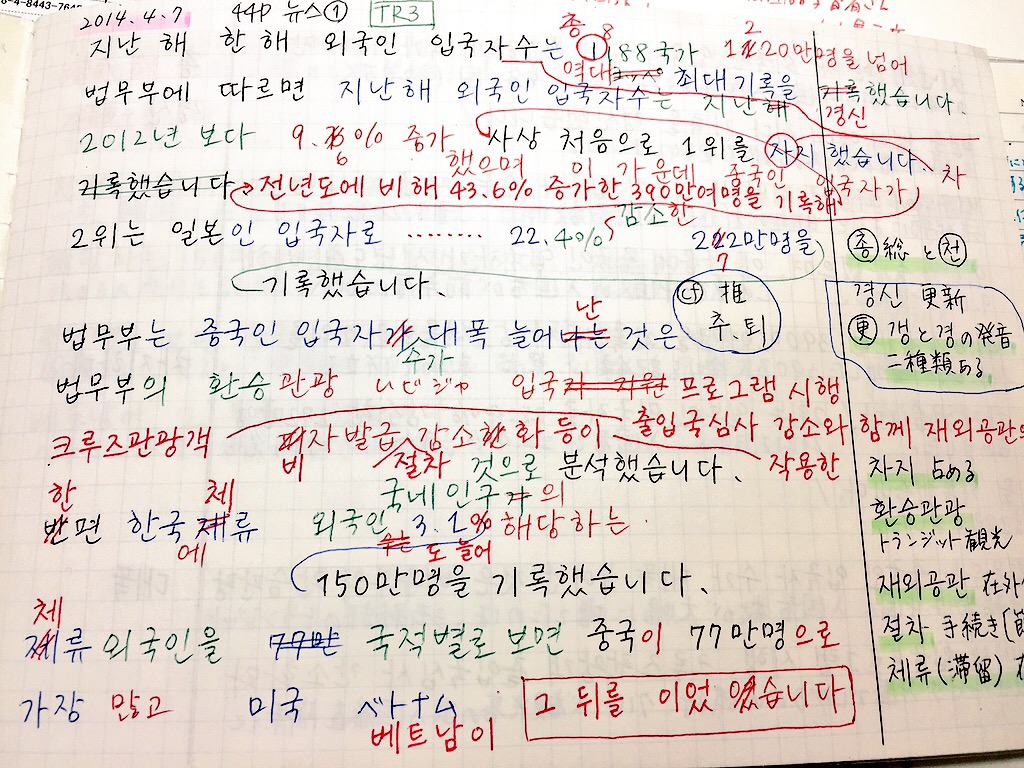 2014.4.7 44P 뉴스① TR3
지난 해 한 해 외국인 입국자수는 총 188국가 1220만명을 넘어
역대 최대기록을
법무부에 따르면 지난해 외국인 입국자수는 지난해 기록했습니다.
경신
2012년 보다 9.6% 증가 사상 처음으로 1위를 차지했습니다.
했으며 이 가운데 중국인 입국자가
기록했습니다. 전년도에 비해 43.6% 증가한 390만여명을 기록해
감소한
2위는 일본인 입국자로 ........ 22.4% 272만명을
기록했습니다.
법무부는 중국인 입국자가 대폭 늘어난 것은
수가
법무부의 환승관광 いビジャ 입국 프로그램 시행
크루즈관광객 비자발급 감소한화 등이 출입국심사 감소와 함께 재외공관
절차 것으로 분석했습니다. 작용한
한 체 국내인구의
반면 한국체류 외국인 3.1% 해당하는
에 수는 도 늘어
150만명을 기록했습니다.
체
체류 외국인을 77만 국적별로 보면 중국이 77만명으로
가장 많고 미국 ベトナム 그 뒤를 이었습니다
베트남이
차
㊀총 総 と 천
cf 推
추.퇴
경신 更新
更 갱と경の発音
二種類ある
차지 占める
환승관광
トランジット観光
재외공관 在外
절차 手続き
체류(滞留)